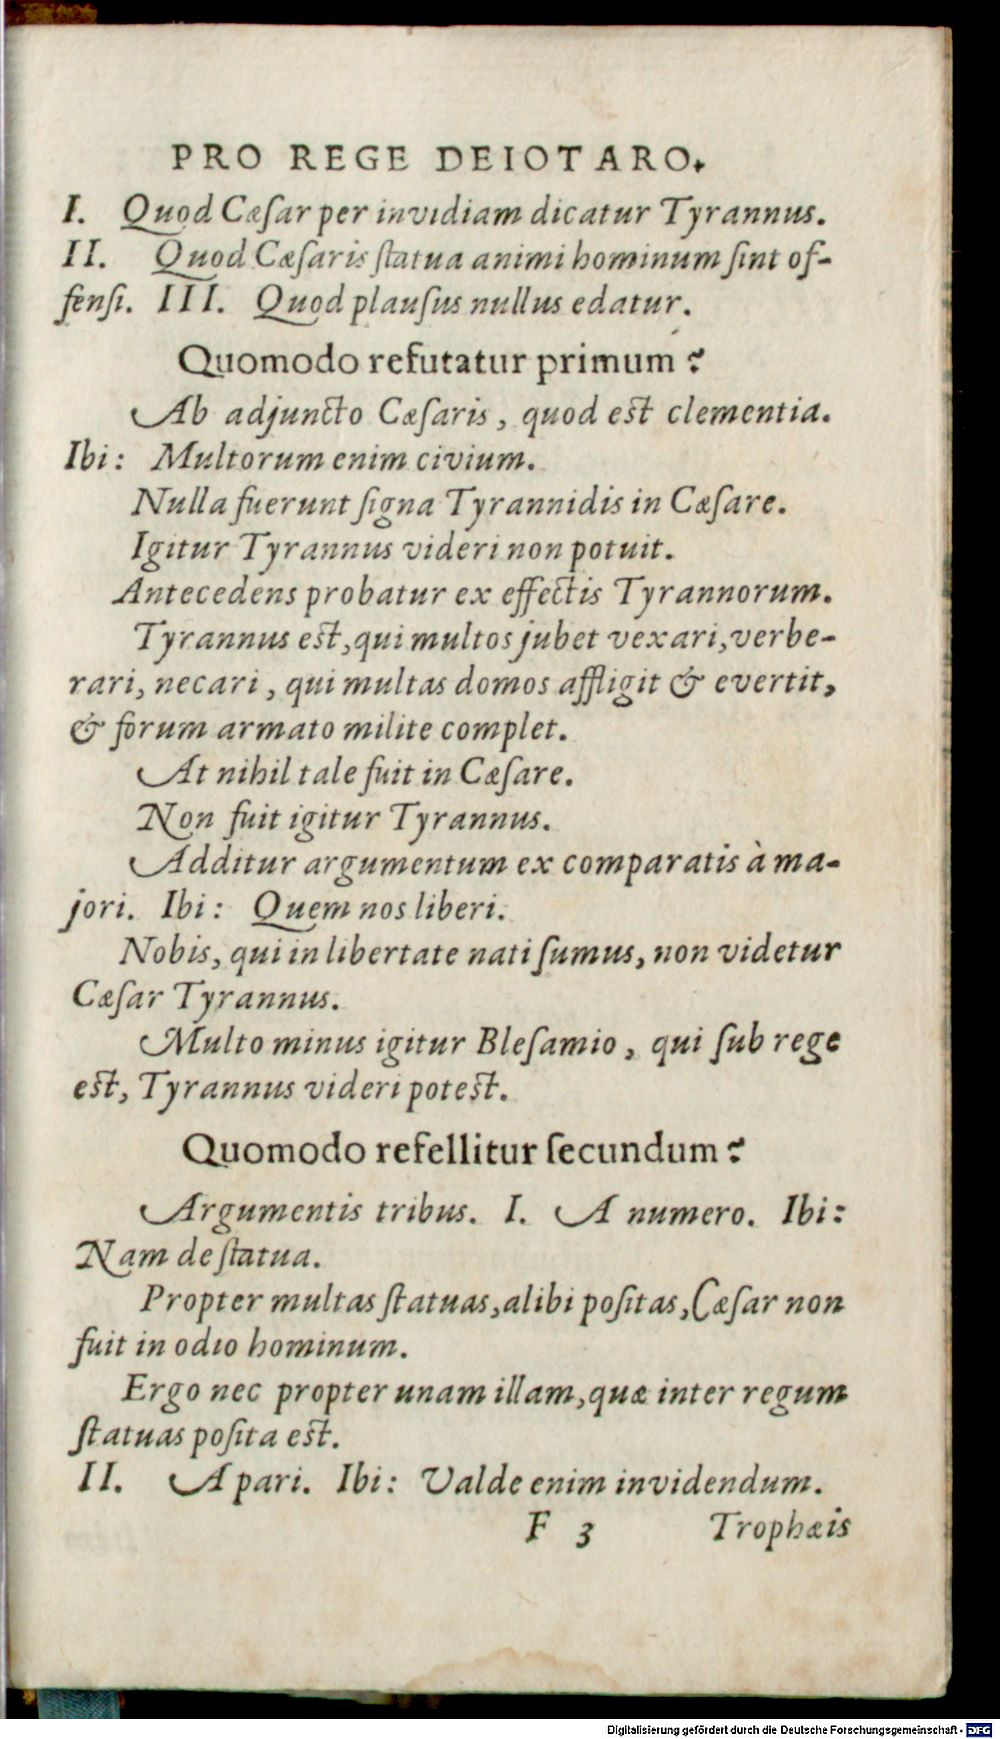 PRO REGE DEIOTARO.
I. Quod Cæſar per invidiam dicatur Tyrannus.
II. Quod Cæſaris ſtatua animi hominum ſint of-
fenſi. III. Quod plauſus nullus edatur.
Quomodo refutatur primum?
Ab adjuncto Cæſaris, quod eſt clementia.
Ibi: Multorum enim civium.
Nulla fuerunt ſigna Tyrannidis in Cæſare.
Igitur Tyrannus videri non potuit.
Antecedens probatur ex effectis Tyrannorum.
Tyrannus eſt, qui multos jubet vexari, verbe-
rari, necari, qui multas domos affligit & evertit,
& forum armato milite complet.
At nihil tale fuit in Cæſare.
Non fuit igitur Tyrannus.
Additur argumentum ex comparatis à ma-
jori. Ibi: Quem nos liberi.
Nobis, qui in libertate nati ſumus, non videtur
Cæſar Tyrannus.
Multo minus igitur Bleſamio, qui ſub rege
eſt, Tyrannus videri poteſt.
Quomodo refellitur ſecundum?
Argumentis tribus. I. A numero. Ibi:
Nam de ſtatua.
Propter multas ſtatuas, alibi poſitas, Cæſar non
fuit in odio hominum.
Ergo nec propter unam illam, quæ inter regum
ſtatuas poſita eſt.
II. A pari. Ibi: Valde enim invidendum.
F 3 Trophæis
Digitalisierung gefördert durch die Deutsche Forschungsgemeinschaft - DFG